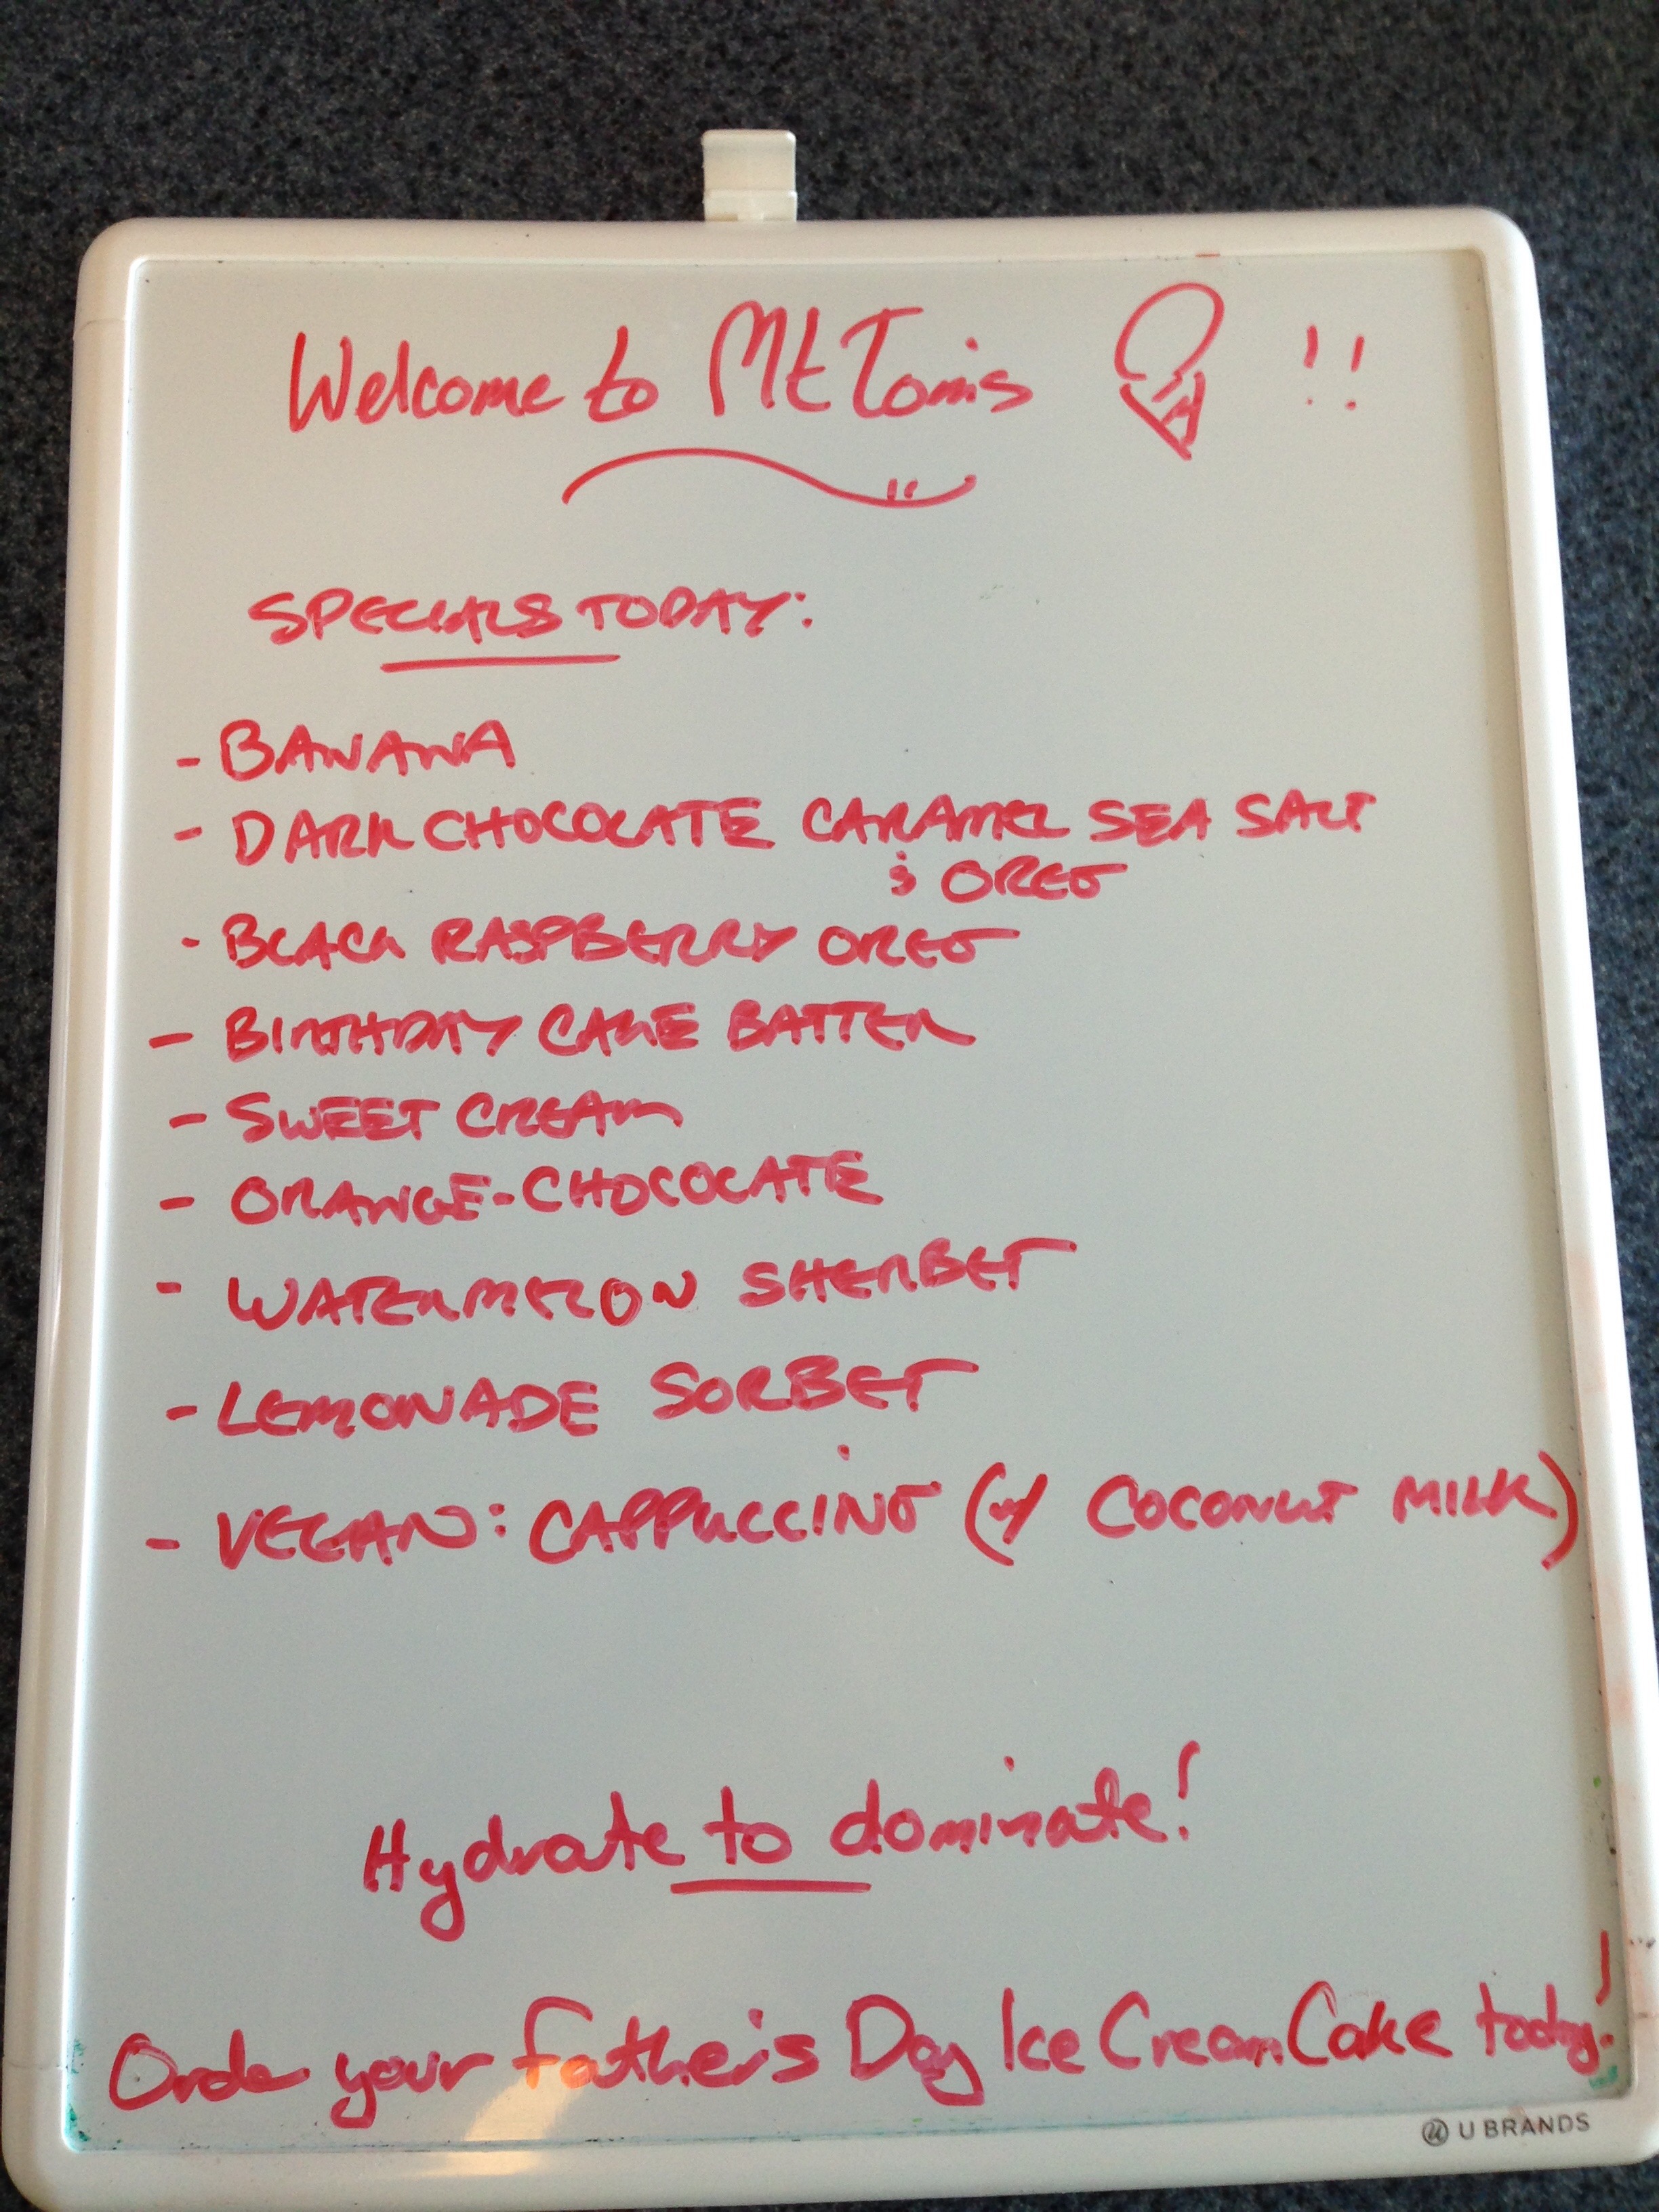 Welcome to Mt Tom's !!
SPECIALS TODAY:
- BANANA
- DARK CHOCOLATE CARAMEL SEA SALT
& OREO
- BLACK RASPBERRY OREO
- BIRTHDAY CAKE BATTER
- SWEET CREAM
- ORANGE-CHOCOLATE
- WATERMELON SHERBET
- LEMONADE SORBET
- VEGAN: CAPPUCCINO (w/ COCONUT MILK)
Hydrate to dominate!
Order your Father's Day Ice Cream Cake today!
U BRANDS